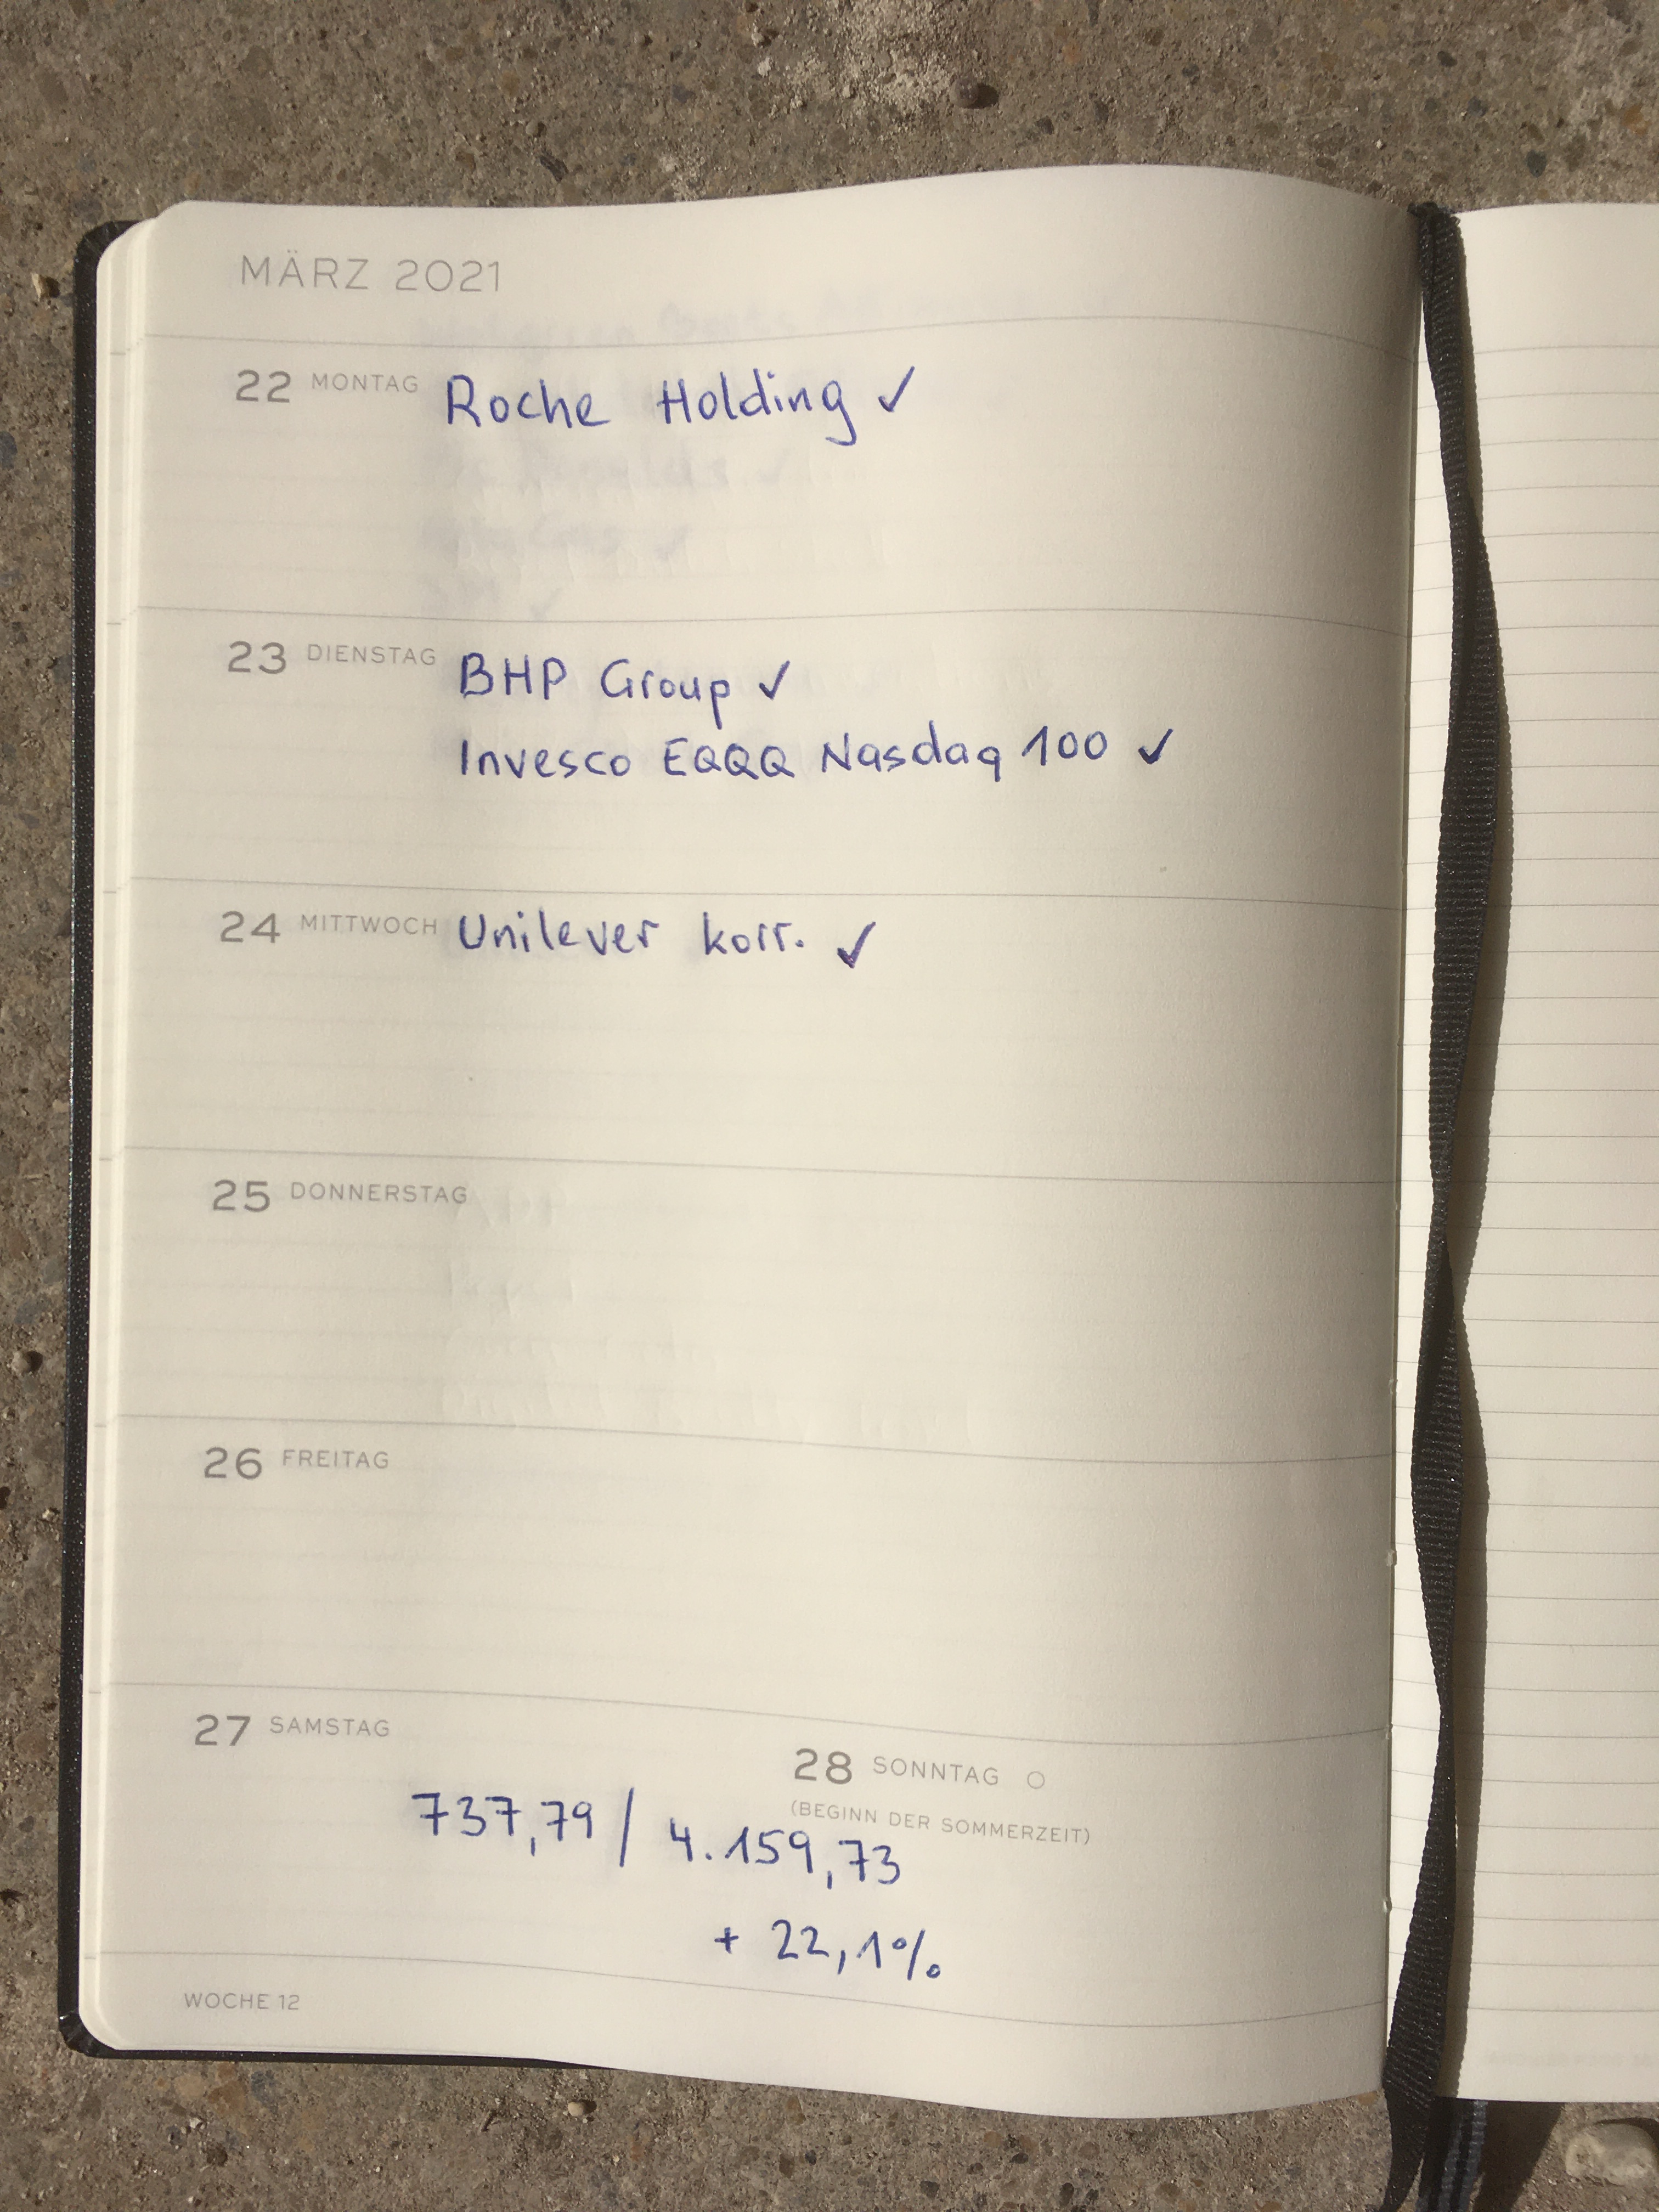 MÄRZ 2021
22 MONTAG Roche Holding ✓
23 DIENSTAG BHP Group ✓
Invesco EQQQ Nasdaq 100 ✓
24 MITTWOCH Unilever korr. ✓
25 DONNERSTAG
26 FREITAG
27 SAMSTAG
28 SONNTAG
(BEGINN DER SOMMERZEIT)
737,79 / 4.159,73
+ 22,1%
WOCHE 12